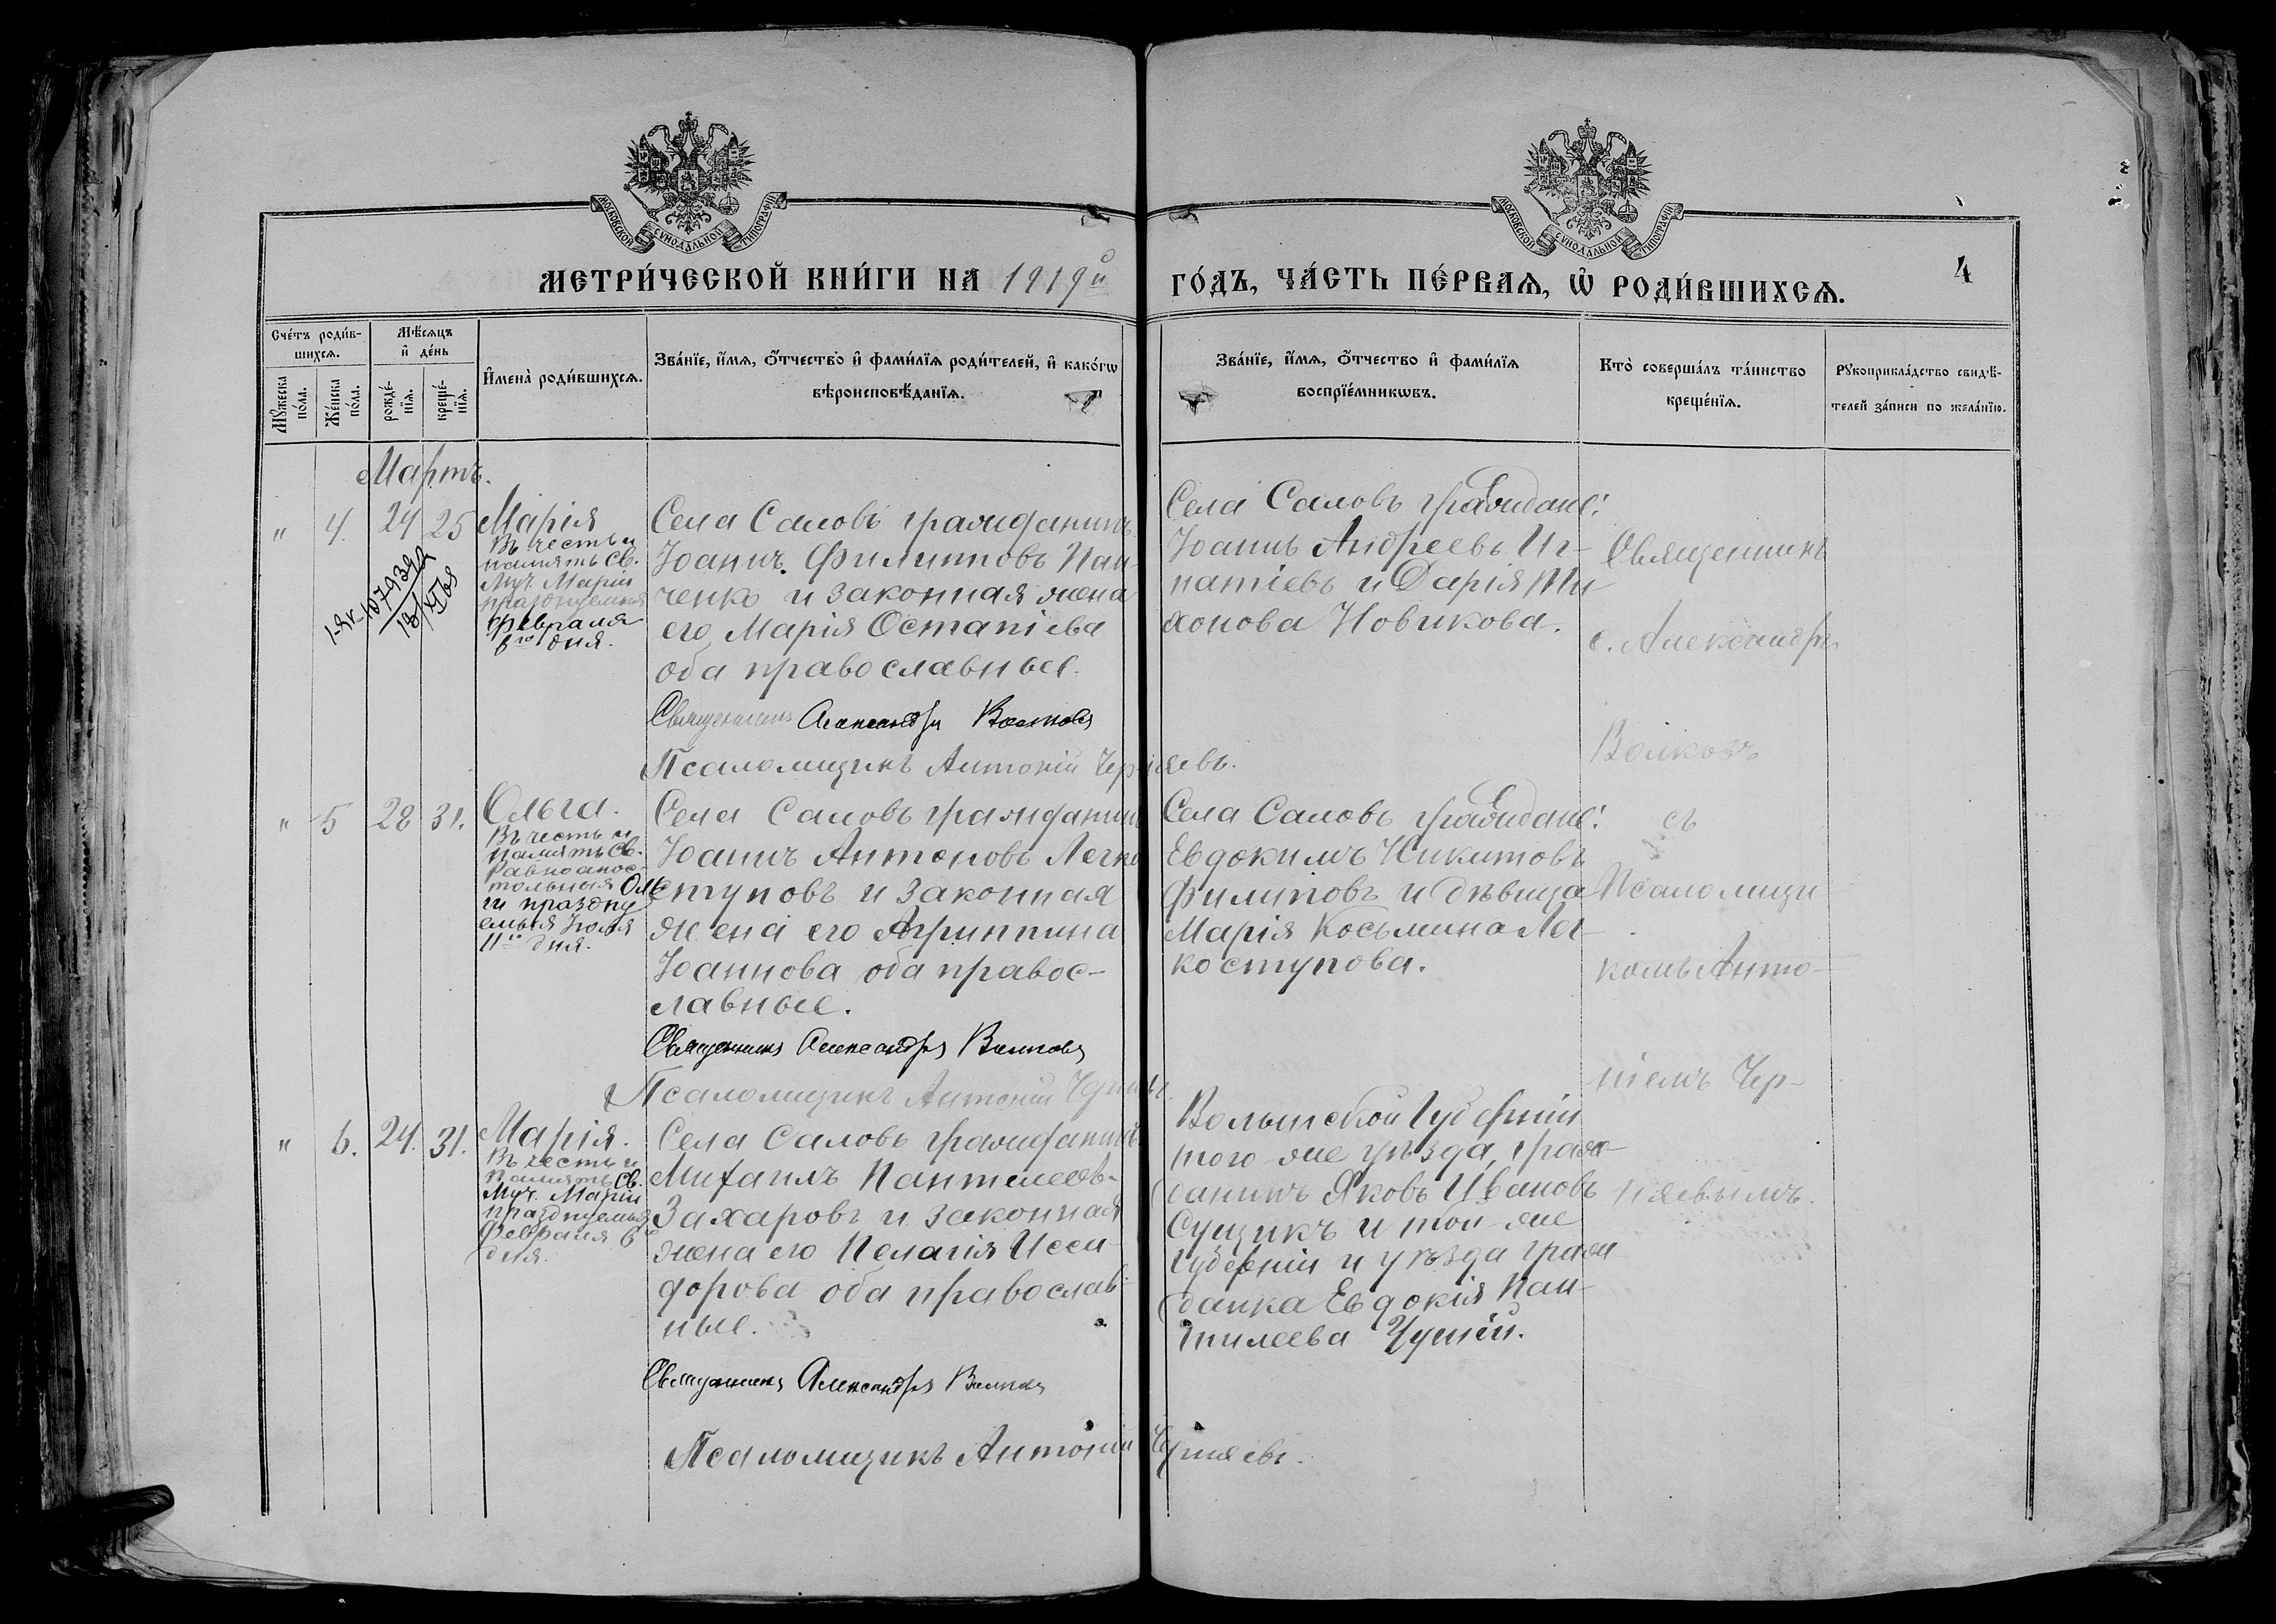 МОСКОВСКОЙ СѴНОДАЛЬНОЙ ТИПОГРАФІИ
МОСКОВСКОЙ СѴНОДАЛЬНОЙ ТИПОГРАФІИ
МЕТРИ́ЧЕСКОЙ КНИ́ГИ НА 1919й ГО́ДЪ, ЧА́СТЬ ПЕ́РВАѦ, Ѽ РОДИ́ВШИХСѦ.
4
Сче́тъ роди́в-
шихсѧ.
Мѣ́сѧцъ
и҆ де́нь
Мꙋ́жеска
по́ла.
Же́нска
по́ла.
рожде́-
нїѧ.
креще́-
нїѧ.
И҆мена̀ роди́вшихсѧ.
Зва́нїе, и҆́мѧ, ѻ҆́тчество и҆ фами́лїѧ роди́телей, и҆ како́гѡ
вѣроисповѣ́данїѧ.
Зва́нїе, и҆́мѧ, ѻ҆́тчество и҆ фами́лїѧ
воспрїе́мникѡвъ.
Кто̀ соверша́лъ та́инство
креще́нїѧ.
Рꙋкоприкла́дство свидѣ́-
телей за́писи по жела́нїю.
Мартъ.
" 4. 24 25
Марія
Въ честь и
память Св.
Муч. Маріи
празднуемыя
Февраля
6го дня.
Села Саловъ гражданинъ
Іоаннъ Филипповъ Пан-
ченко и законная жена
его Марія Остапіева
оба православные.
Священникъ Александръ Волковъ
Псаломщикъ Антоній Черняевъ.
Села Саловъ граждане:
Іоаннъ Андреевъ Иг-
натіевъ и Дарія Ти-
хонова Новикова.
Священникъ
о. Александръ
Волковъ
съ
Псаломщи-
комъ Анто-
ніемъ Чер-
няевымъ.
" 5 28 31.
Ольга.
Въ честь и
память Св.
Равноапос-
тольная Оль-
ги праздну
емыя Іюля
11го дня.
Села Саловъ гражданинъ
Іоаннъ Антоновъ Легко
ступовъ и законная
жена его Агриппина
Іоаннова оба правос-
лавные.
Священникъ Александръ Волковъ
Псаломщикъ Антоній
Села Саловъ граждане:
Евдокимъ Никитовъ
Филиповъ и дѣвица
Марія Косьмина Лег-
коступова.
" 6. 24. 31.
Марія.
Въ честь и
память Св.
Муч. Маріи
празднуемыя
Февраля 6го
дня.
Села Саловъ гражданинъ
Михаилъ Пантелеевъ
Захаровъ и законная
жена его Пелагія Иси-
дорова оба православ-
ные.
Священникъ Александръ Волковъ
Псаломщикъ Антоній Черняевъ.
Волынской Губерніи
того-же уѣзда, граж-
данинъ Яковъ Ивановъ
Сущикъ и той-же
Губерніи и уѣзда граж
данка Евдокія Пан-
тилеева